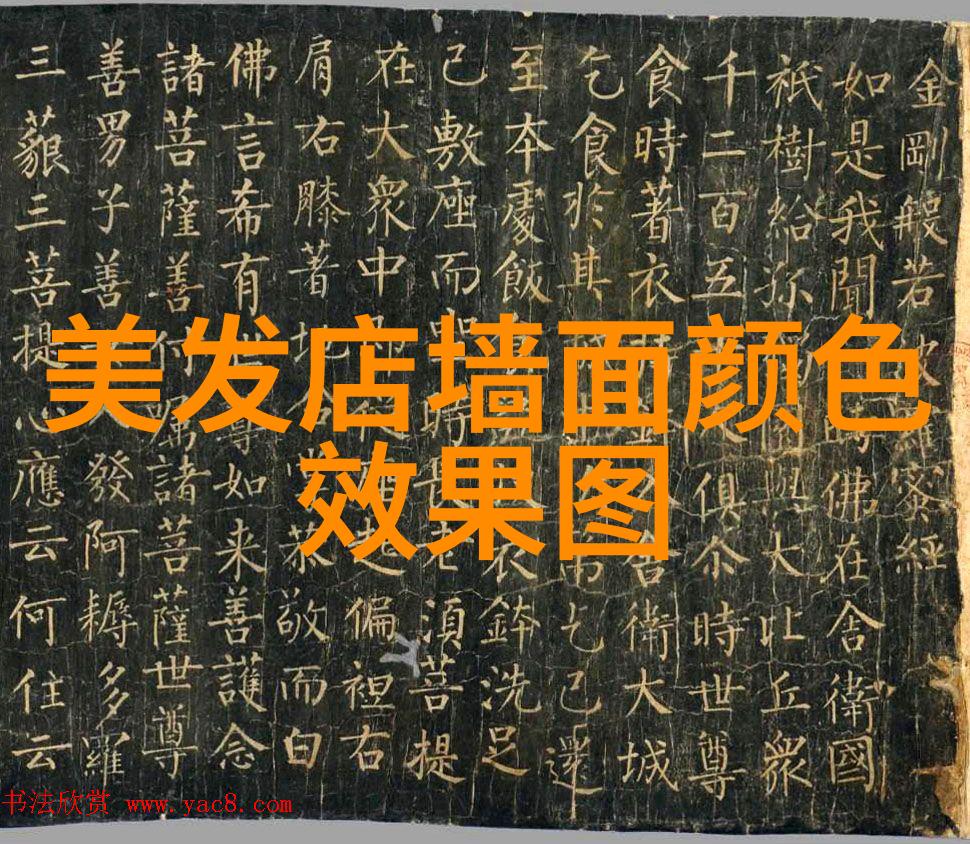 美发店墙面颜色
效果图
金剛般若蜜經
如是我聞時佛在舍衛國
祇樹給孤園與大比丘眾
千二百五人俱尒時世尊
食時著衣舍衛大城
乞食於其乞已還
至本處飯衣鉢洗足
已敷座而坐時長老須菩提
在大眾中即從起偏袒右
肩右膝著地合恭敬而白
佛言希有世尊如来善護念
諸菩薩善付囑諸菩薩世尊
善男子善發阿耨多羅
三藐三菩提心應云何住云
书法欣赏 www.yac8.com